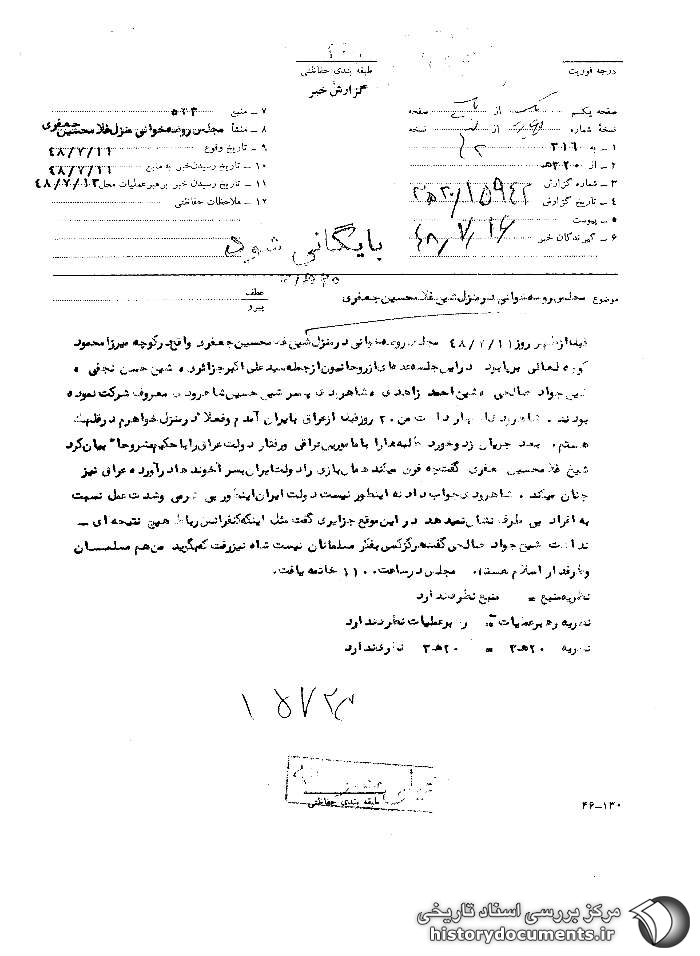 درجه فوریت
طبقه بندی حفاظتی
گزارش خبر
صفحه یکم از صفحه
نسخهٔ شماره از نسخه
۱ ـ به ۳۱۶
۲ ـ از ۲۰ه‍ ۳
۳ ـ شماره گزارش ۱۵۹۴۲/۲۰ه‍۳
۴ ـ تاریخ گزارش ۴۸/۷/۱۶
۵ ـ پیوست
۶ ـ گیرندگان خبر
۷ ـ منبع ۵۶۳
۸ ـ منشأ مجلس روضه‌خوانی منزل غلامحسین جعفری
۹ ـ تاریخ وقوع ۴۸/۷/۱۱
۱۰ ـ تاریخ رسیدن خبر به منبع ۴۸/۷/۱۱
۱۱ ـ تاریخ رسیدن خبر به رهبر عملیات محل ۴۸/۷/۱۳
۱۲ ـ ملاحظات حفاظتی
بایگانی شود
موضوع مجلس روضه خوانی در منزل شیخ غلامحسین جعفری
عطف
پیرو
قبل از ظهر روز ۴۸/۷/۱۱ مجلس روضه خوانی در منزل شیخ غلامحسین جعفری واقع در کوچه میرزا محمود
برپا بود در این جلسه عده‌ای از روحانیون از جمله سید علی اکبر جزائری و شیخ حسن نجفی و
شیخ جواد صالحی و شیخ احمد زاهدی و شاهرودی پسر شیخ حسین شاهرودی معروف شرکت نموده
بودند. شاهرودی اظهار داشت من ۲۰ روز قبل از عراق بایران آمدم و فعلا در منزل خواهرم در قلهک
هستم. بعد جریان زد و خورد طلبه‌ها را با مامورین عراقی و رفتار دولت عراق را با حکیم مشروحا" بیان کرد
شیخ غلامحسین جعفری گفت چه فرق میکند همان بازی را دولت ایران بسر آخوندها درآورده عراق نیز
چنان میکند. شاهرودی جواب داد نه اینطور نیست دولت ایران اینطور بی شرمی و شدت عمل نسبت
به افراد بی طرف نشان نمیدهد در این موقع جزایری گفت مثل اینکه کنفرانس رباط هیچ نتیجه ای ـ
نداشت شیخ جواد صالحی گفت هرگز کسی بفکر مسلمانان نیست شاه نیز رفت که بگوید من هم مسلمان
و طرفدار اسلام هستم. مجلس در ساعت ۱۱۰۰ خاتمه یافت.
نظریه منبع = منبع نظر ندارد
نظریه رهبر عملیات = رهبر عملیات نظر ندارد
نظریه ۲۰ه‍۳ = ۲۰ه‍۳ نظر ندارد
۱۵۷۲۳
طبقه بندی حفاظتی
۴۶-۱۳۰
مرکز بررسی اسناد تاریخی
historydocuments.ir